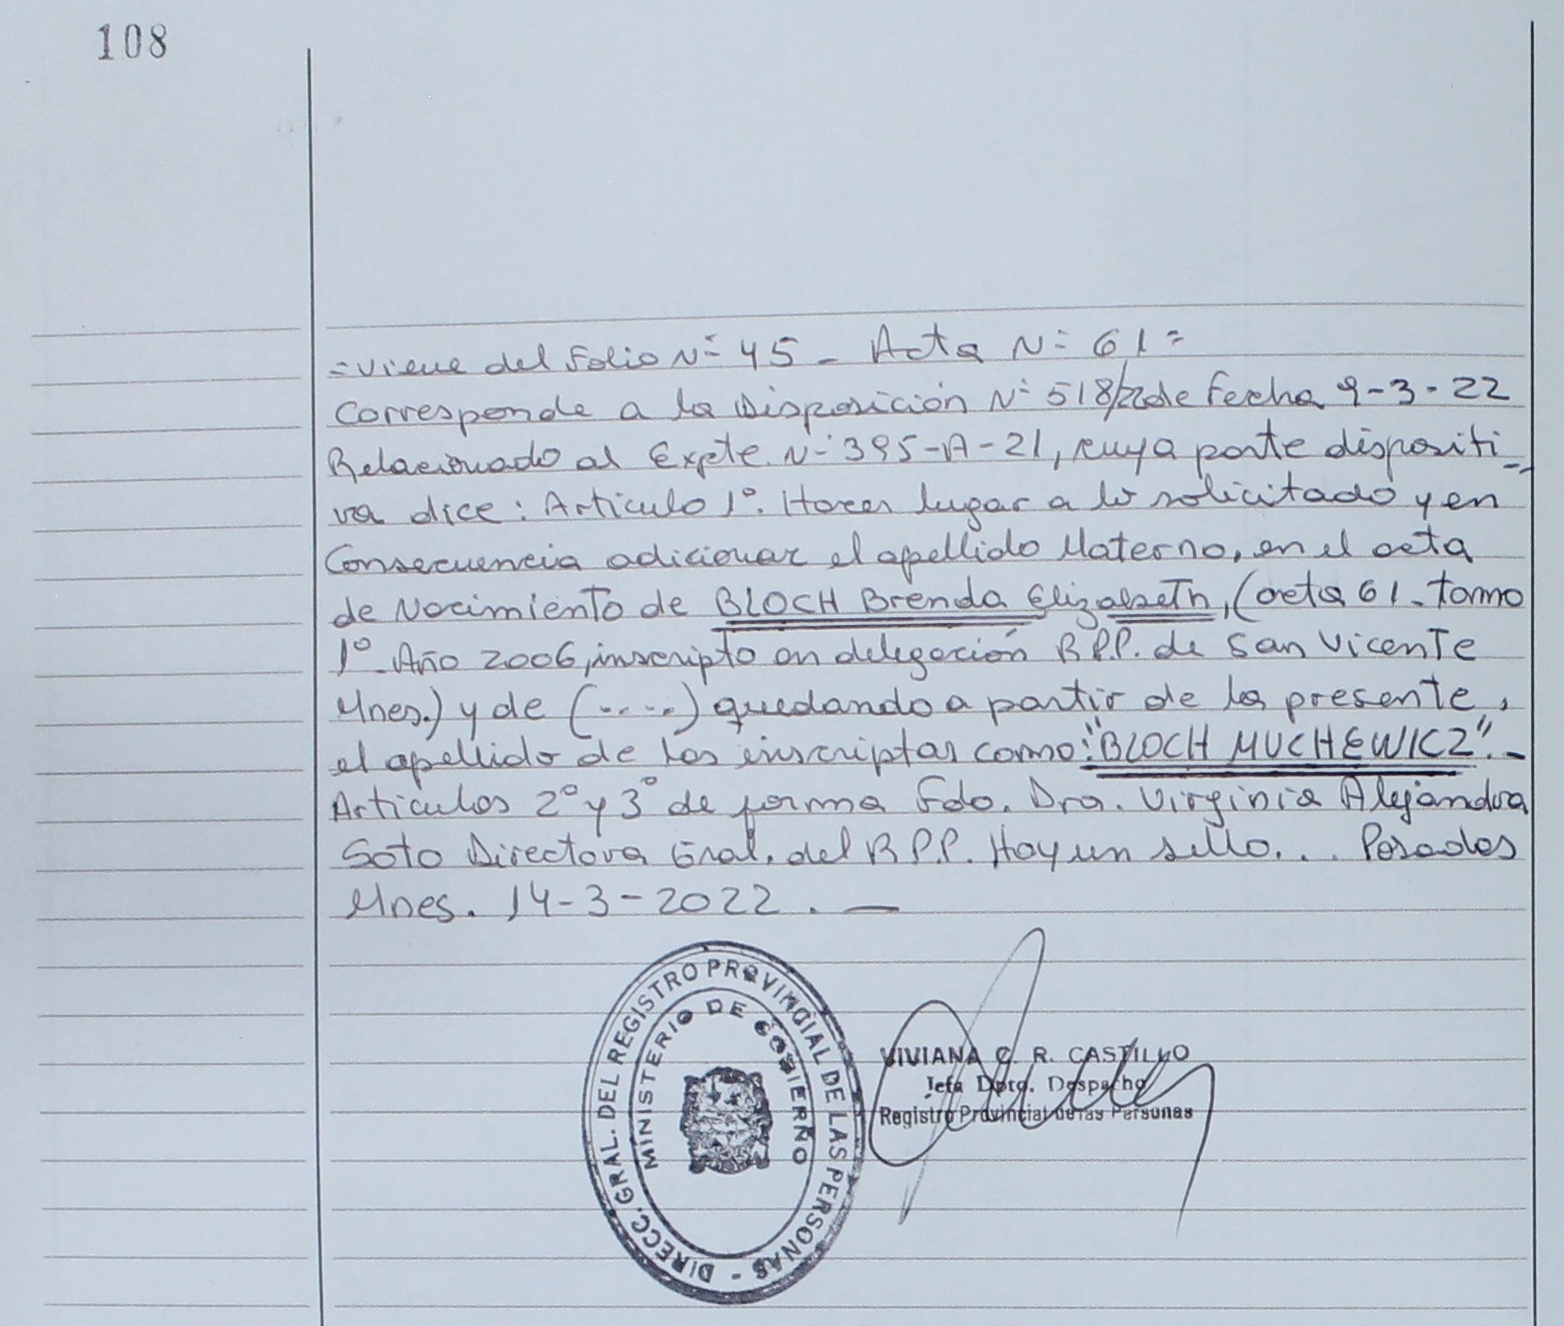 108
=Viene del Folio Nº 45 - Acta Nº 61=
Corresponde a la Disposición Nº 518/22 de Fecha 9-3-22
Relacionado al Expte. Nº 395-A-21, cuya parte dispositi-
va dice: Artículo 1º. Hacer lugar a lo solicitado y en
Consecuencia adicionar el apellido Materno, en el acta
de Nacimiento de BLOCH Brenda Elizabeth, (acta 61 - tomo
1º - Año 2006, inscripto en delegación R.P.P. de San Vicente
Mnes.) y de (.....) quedando a partir de la presente,
el apellido de las inscriptas como: "BLOCH MUCHEWICZ".-
Artículos 2º y 3º de forma Fdo. Dra. Virginia Alejandra
Soto Directora Gral. del R.P.P. Hay un sello... Posadas
Mnes. 14-3-2022. —
DIRECC. GRAL. DEL REGISTRO PROVINCIAL DE LAS PERSONAS -
MINISTERIO DE GOBIERNO
VIVIANA C. R. CASTILLO
Jefa Dpto. Despacho
Registro Provincial de las Personas